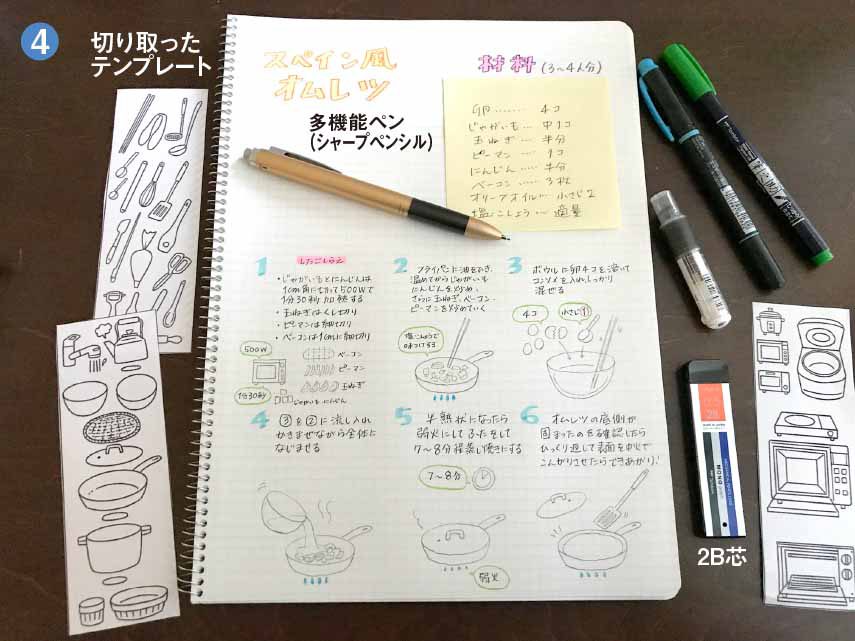 4
切り取った
テンプレート
スペイン風
オムレツ
多機能ペン
(シャープペンシル)
材料(3〜4人分)
卵……… 4コ
じゃがいも… 中1コ
玉ねぎ… 半分
ピーマン…… 1コ
にんじん…… 半分
ベーコン…… 3枚
オリーブオイル… 小さじ2
塩こしょう… 適量
1 したごしらえ
・じゃがいもとにんじんは
1cm角に切って500Wで
1分30秒加熱する
・玉ねぎはくし切り
・ピーマンは細切り
・ベーコンは1cmに細切り
500W
1分30秒
ベーコン
ピーマン
玉ねぎ
じゃがいも にんじん
2 フライパンに油をひき、
温めてからじゃがいも
にんじんを炒め、
さらに玉ねぎ、ベーコン・
ピーマンを炒めていく
塩こしょうで
味つけする
3 ボウルに卵4コを溶いて
コンソメを入れ、しっかり
混ぜる
4コ
小さじ①
4 ③を②に流し入れ
かきまぜながら全体に
なじませる
5 半熟状になったら
弱火にしてふたをして
7〜8分程蒸し焼きにする
7〜8分
弱火
6 オムレツの底側が
固まったのを確認したら
ひっくり返して表面を中火で
こんがりさせたらできあがり!
2B
MONO
2B芯